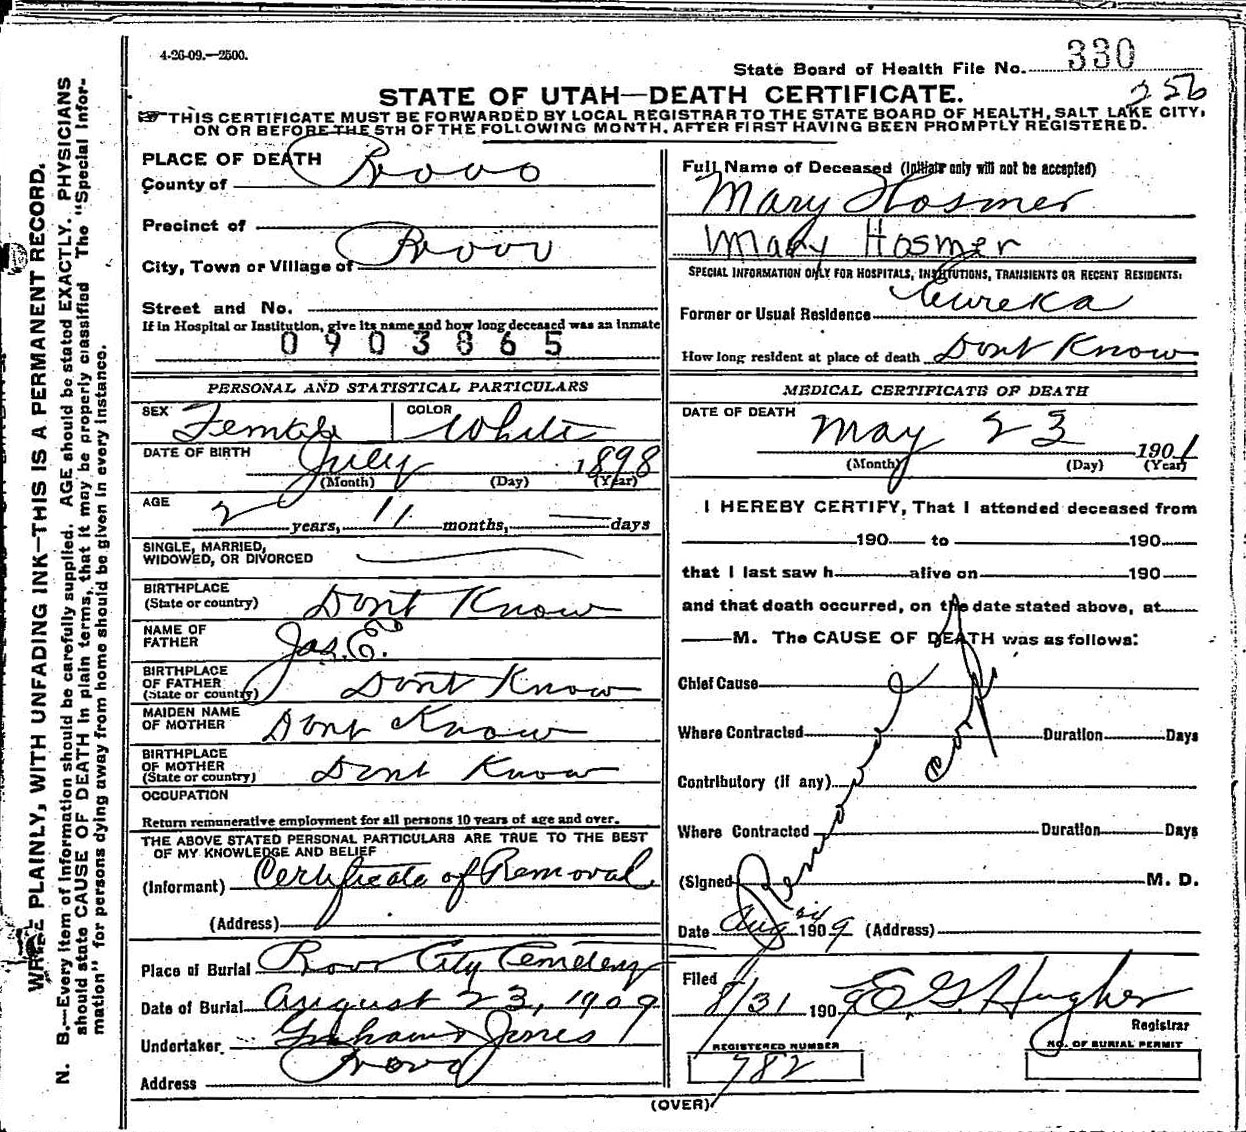 4-26-09.—2500.
State Board of Health File No. 330
256
STATE OF UTAH—DEATH CERTIFICATE.
THIS CERTIFICATE MUST BE FORWARDED BY LOCAL REGISTRAR TO THE STATE BOARD OF HEALTH, SALT LAKE CITY,
ON OR BEFORE THE 5TH OF THE FOLLOWING MONTH, AFTER FIRST HAVING BEEN PROMPTLY REGISTERED.
WRITE PLAINLY, WITH UNFADING INK—THIS IS A PERMANENT RECORD.
N. B.—Every item of Information should be carefully supplied. AGE should be stated EXACTLY. PHYSICIANS
should state CAUSE OF DEATH in plain terms, that it may be properly classified The "Special Infor-
mation" for persons dying away from home should be given in every instance.
PLACE OF DEATH
County of Provo
Precinct of
City, Town or Village of Provo
Street and No.
If in Hospital or Institution, give its name and how long deceased was an inmate
0903865
PERSONAL AND STATISTICAL PARTICULARS
SEX Female COLOR White
DATE OF BIRTH July 1898
(Month) (Day) (Year)
AGE 2 years, 11 months, — days
SINGLE, MARRIED,
WIDOWED, OR DIVORCED
BIRTHPLACE
(State or country) Dont Know
NAME OF
FATHER Jas. E.
BIRTHPLACE
OF FATHER
(State or country) Dont Know
MAIDEN NAME
OF MOTHER Dont Know
BIRTHPLACE
OF MOTHER
(State or country) Dont Know
OCCUPATION
Return remunerative employment for all persons 10 years of age and over.
THE ABOVE STATED PERSONAL PARTICULARS ARE TRUE TO THE BEST
OF MY KNOWLEDGE AND BELIEF
(Informant) Certificate of Removal
(Address)
Place of Burial Provo City Cemetery
Date of Burial August 23, 1909
Undertaker Graham & Jones
Address Provo
Full Name of Deceased (Initials only will not be accepted)
Mary Hosmer
Mary Hosmer
SPECIAL INFORMATION ONLY FOR HOSPITALS, INSTITUTIONS, TRANSIENTS OR RECENT RESIDENTS:
Former or Usual Residence Eureka
How long resident at place of death Dont Know
MEDICAL CERTIFICATE OF DEATH
DATE OF DEATH May 23 1901
(Month) (Day) (Year)
I HEREBY CERTIFY, That I attended deceased from
190 to 190
that I last saw h alive on 190
and that death occurred, on the date stated above, at
M. The CAUSE OF DEATH was as follows:
Chief Cause
Where Contracted Duration Days
Contributory (if any)
Where Contracted Duration Days
Removal
(Signed M. D.
Date Aug 24 1909 (Address)
Filed 8/31 1909 E. G. Hughes
Registrar
REGISTERED NUMBER
782
NO. OF BURIAL PERMIT
(OVER)